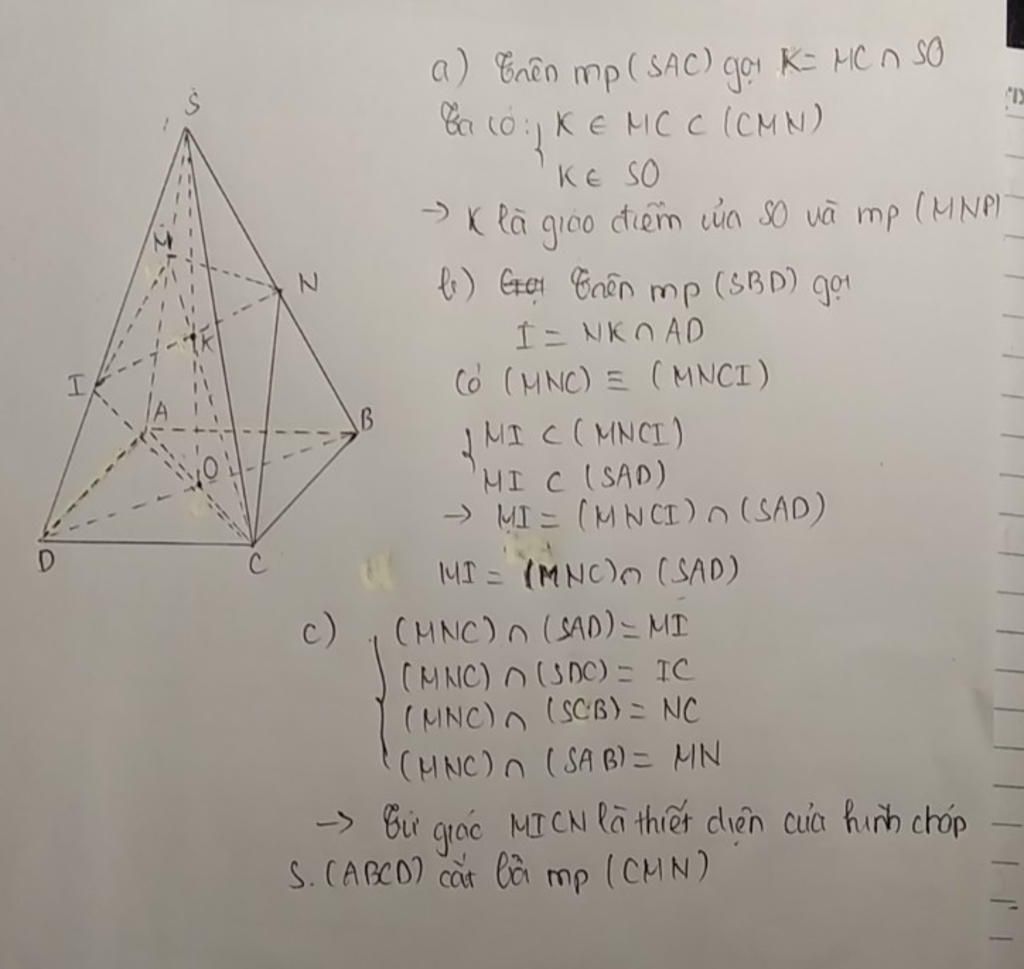 a) Trên mp(SAC) gọi K = MC ∩ SO
Ta có: { K ∈ MC ⊂ (CMN)
K ∈ SO
→ K là giao điểm của SO và mp (MNP)
b) Trên mp (SBD) gọi
I = NK ∩ AD
Có (MNC) ≡ (MNCI)
{ MI ⊂ (MNCI)
MI ⊂ (SAD)
→ MI = (MNCI) ∩ (SAD)
MI = (MNC) ∩ (SAD)
c) { (MNC) ∩ (SAD) = MI
(MNC) ∩ (SDC) = IC
(MNC) ∩ (SCB) = NC
(MNC) ∩ (SAB) = MN
→ Tứ giác MICN là thiết diện của hình chóp
S.(ABCD) cắt bởi mp (CMN)
S
M
N
K
I
A
B
O
D
C